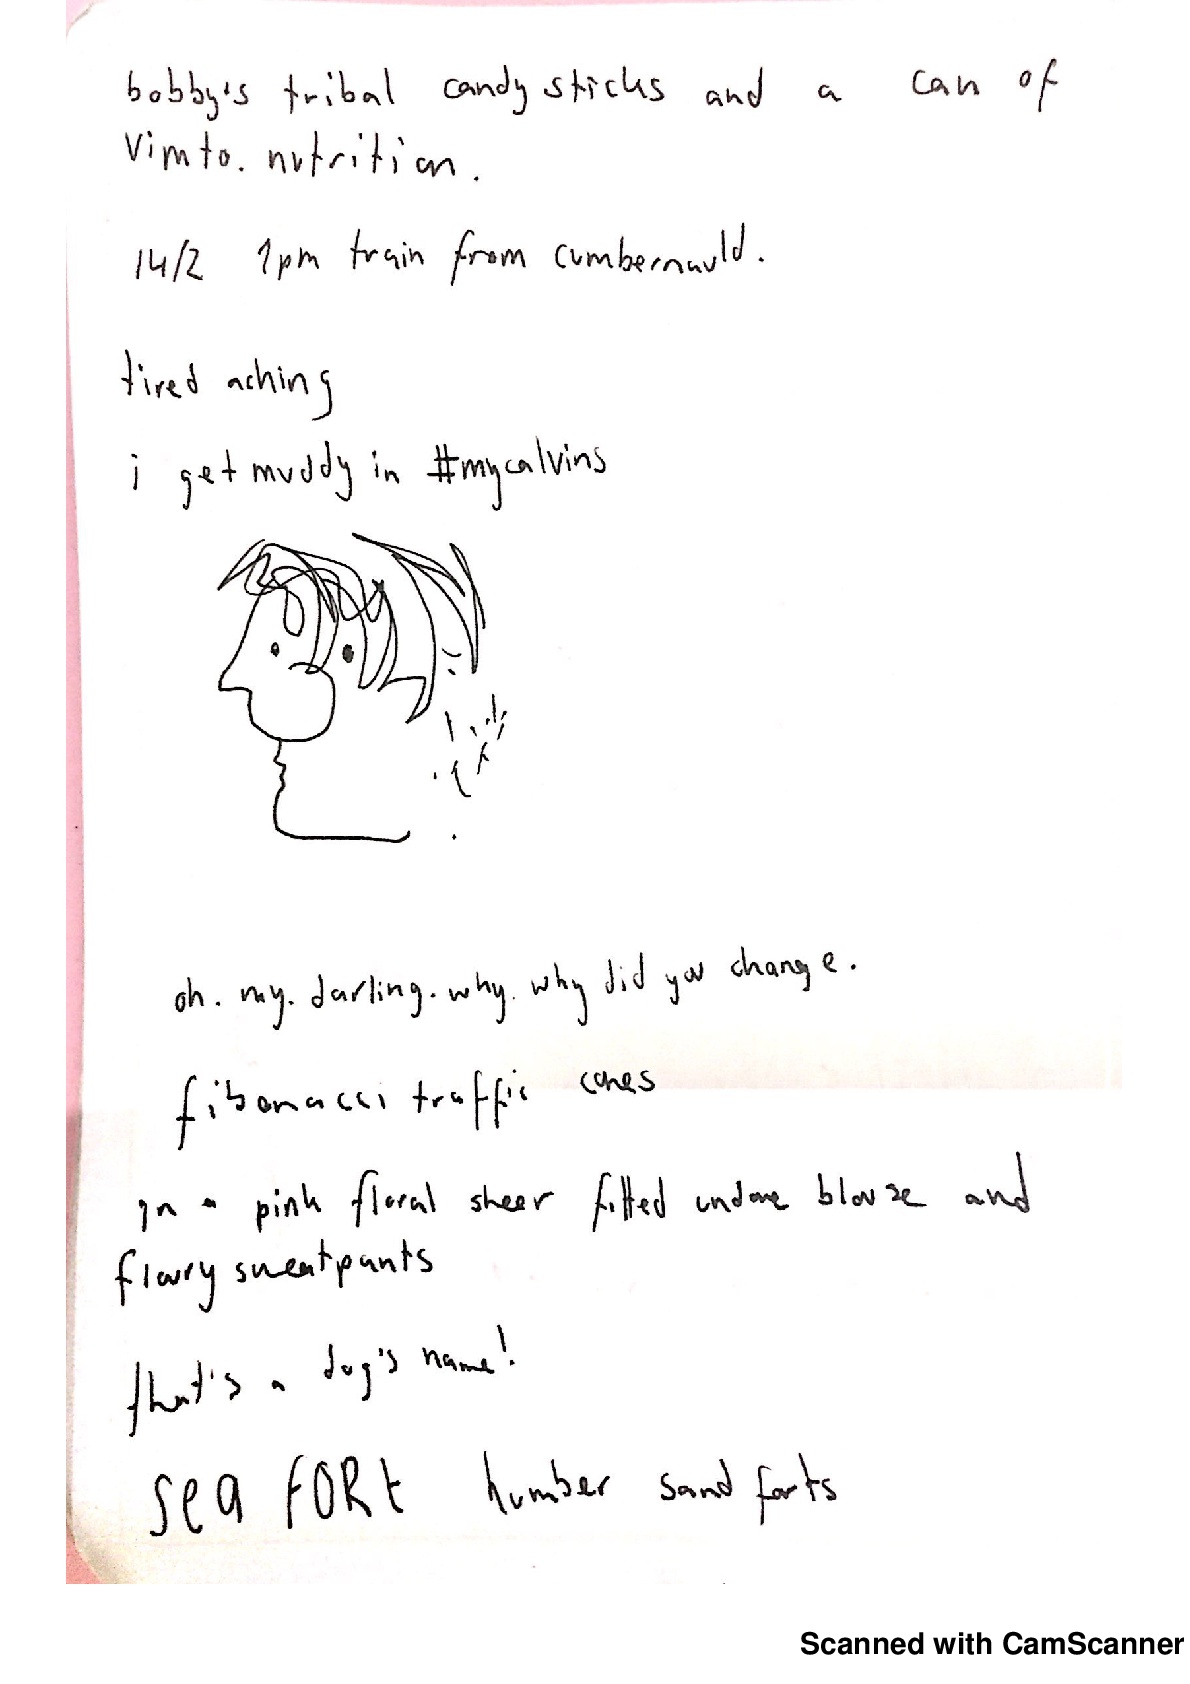 bobby's tribal candy sticks and a can of
Vimto. nutrition.
14/2 1pm train from cumbernauld.
tired aching
i get muddy in #mycalvins
oh. my. darling. why. why did you change.
fibonacci traffic cones
in a pink floral sheer fitted undone blouse and
sweatpants
that's a dog's name!
Sea FORt humber sand forts
Scanned with CamScanner